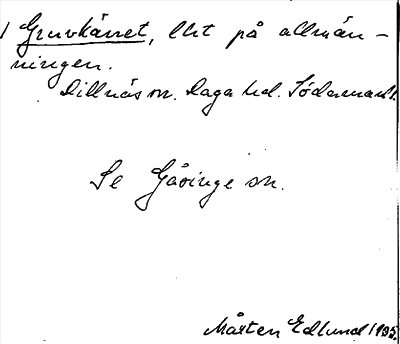 / Gruvkärret, llit på allmän-
ningen.
Dillnäs sn. Daga hd. Södermanl.
Se Gåsinge sn.
Mårten Edlund 1935.